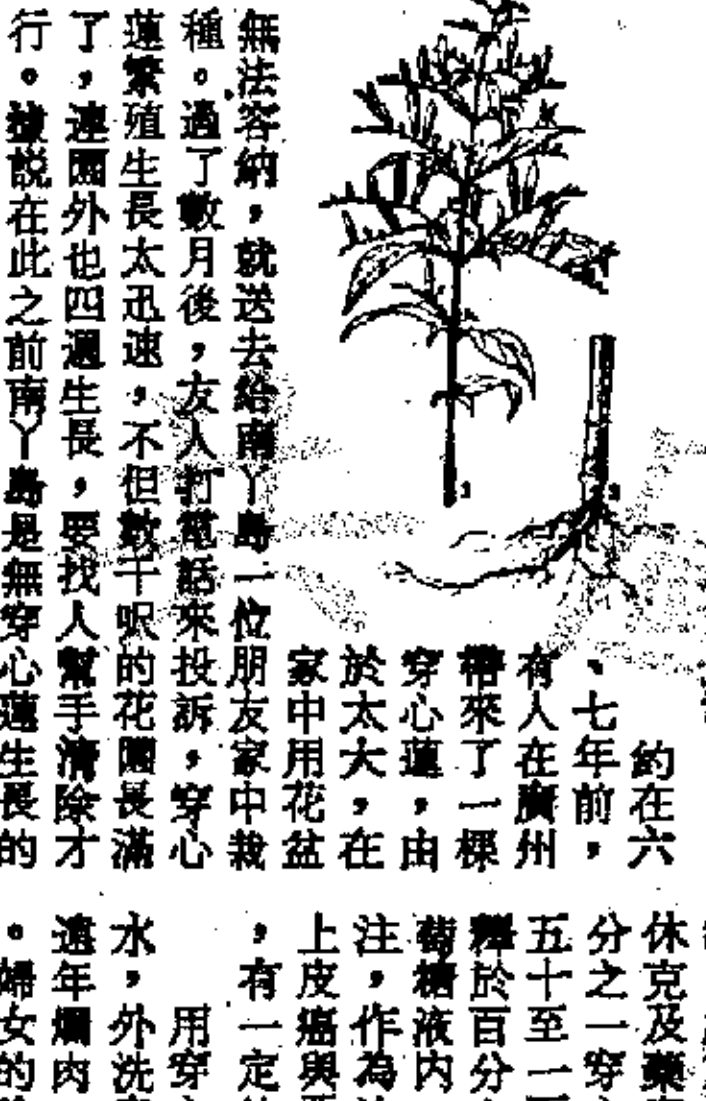 約在六
、七年前，
有人在廣州
帶來了一棵
穿心蓮，由
於太大，在
家中用花盆
無法容納，就送去給南丫島一位朋友家中栽
種。過了數月後，友人打電話來投訴，穿心
蓮繁殖生長太迅速，不但數千呎的花園長滿
了，連園外也四週生長，要找人幫手清除才
行。據說在此之前南丫島是無穿心蓮生長的
休克及藥
分之一穿
五十至一
釋於百分
萄糖液內
注，作為
上皮癌與
，有一定
用穿
水，外洗
遠年爛肉
。婦女的
1
2